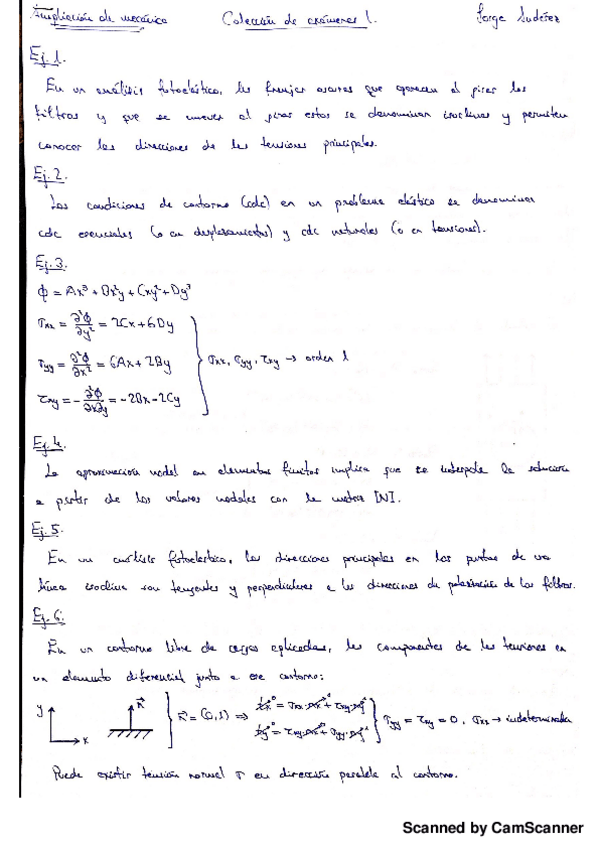 Ampliación de mecánica Colección de exámenes 1. Jorge
Ej. 1.
En un análisis fotoelástico, las franjas oscuras que aparecen al girar los
filtros y que se mueven al girar estos se denominan isoclinas y permiten
conocer las direcciones de las tensiones principales.
Ej. 2.
Las condiciones de contorno (cdc) en un problema elástico se denominan
cdc esenciales (o en desplazamientos) y cdc naturales (o en tensiones).
Ej. 3.
ϕ = Ax³ + Bx²y + Cxy² + Dy³
σxx = ∂²ϕ/∂y² = 2Cx + 6Dy
σyy = ∂²ϕ/∂x² = 6Ax + 2By } σxx, σyy, τxy → orden 1
τxy = -∂²ϕ/∂x∂y = -2Bx - 2Cy
Ej. 4.
La aproximación nodal en elementos finitos implica que se interpola la solución
a partir de los valores nodales con la matriz [N].
Ej. 5.
En un análisis fotoelástico, las direcciones principales en los puntos de una
línea isoclina son tangentes y perpendiculares a las direcciones de polarización de los filtros.
Ej. 6.
En un contorno libre de cargas aplicadas, las componentes de las tensiones en
un elemento diferencial junto a ese contorno:
y x n⃗ } n⃗ = (0,1) ⇒ tx⁰ = σxx·nx⁰ + τxy·ny¹
ty⁰ = τxy·nx⁰ + σyy·ny¹ } σyy = τxy = 0, σxx → indeterminada
Puede existir tensión normal σ en dirección paralela al contorno.
Scanned by CamScanner